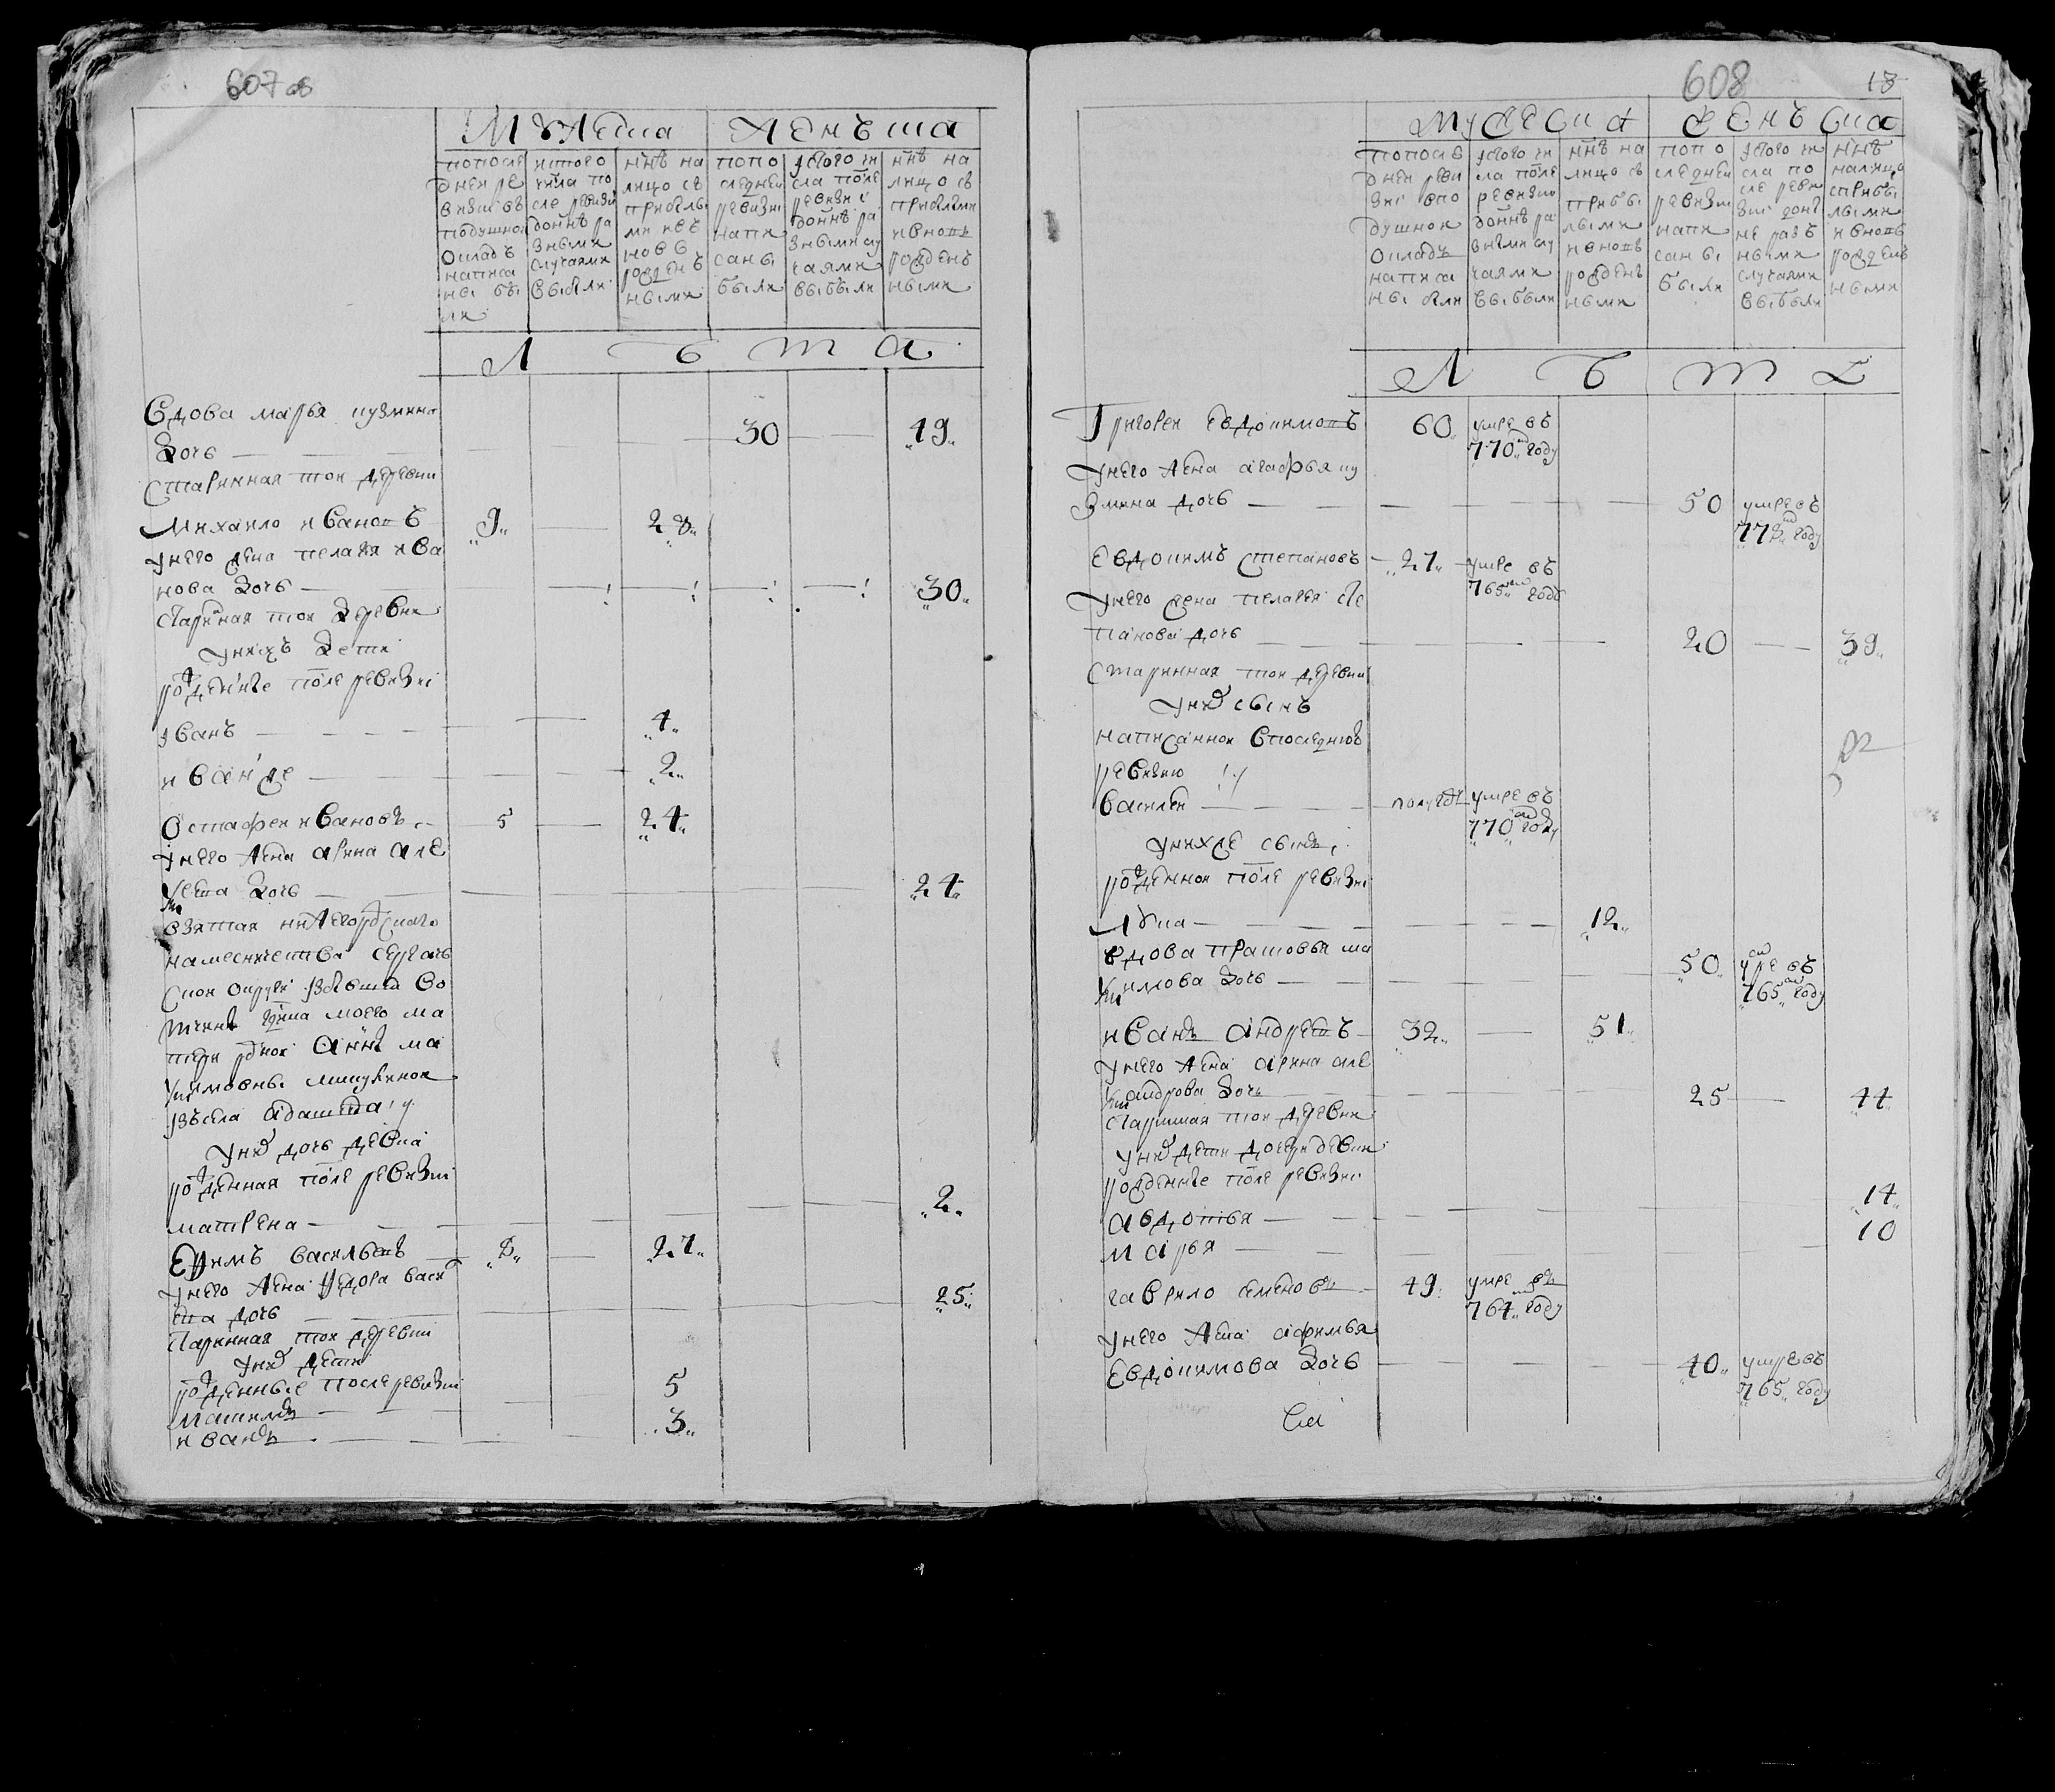 607 об
Мужеска Женъска
попосле
днеи ре
визиі въ
подушнои
окладъ
написа
ны бы
ли
истого
числа по
сле ревизи
доннѣ ра
зными
случаями
выбыли
ннѣ на
лицо съ
прибылы
ми и въ
новъ
рожденъ
ными
попо
следнеи
ревизиі
напи
саны
были
ізтого чи
сла после
ревизиі
доннѣ ра
зными слу
чаями
выбыли
ннѣ на
лицо съ
прибылыми
и вновь
рожденъ
ными
Л ѣ т а
Вдова марья кузмина
дочь 30 49
Старинная тои деревни
Михаило ивановъ 9 28
унего жена пелагея ива
нова дочь 30
Старинная тои деревни
унихъ дети
рожденные после ревизиі
іванъ 4
иванже 2
Остафеи ивановъ 5 24
унего жена арина але
ксеева дочь 24
взятая нижегородскаго
наместничества сергачь
скои округи
матери
Аннѣ ма
ксимовны
ізъсела
уних дочь девка
рожденная после ревизиі
матрена 2
Ефимъ васильевъ 8 27
унего жена федора васи
ева дочь 25
Старинная тои деревни
уних дети
рожденные после ревизиі 5
максимъ
иванъ 3
608 18
Мужеска Женъска
попосле
днеи реви
зиі впо
душнои
окладъ
написа
ны были
ізтого чи
сла после
ревизиі
доннѣ ра
зными слу
чаями
выбыли
ннѣ на
лицо съ
прибы
лыми
и вновь
рожденъ
ными
попо
следнеи
ревизиі
напи
саны
были
ізтого чи
сла по
сле реви
зиі дон
не разъ
ными
случаями
выбыли
ннѣ
налицо
сприбы
лыми
и вновь
рожденъ
ными
Л ѣ т а
Григореи евдокимовъ 60 умре въ
770м году
унего жена агафья ку
змина дочь 50 умре въ
772м году
Евдокимъ степановъ 27 умре въ
765м годе
унего жена пелагея сте
панова дочь 20 39
Старинная тои деревни
уних сынъ
написаннои впоследнюю
ревизию
василеи полугоду умре въ
770м году
унихже сынъ
рожденнои после ревизиі
Лука 12
вдова прасковья ма
ксимова дочь 50 умре въ
765м году
иванъ андреевъ 32 51
унего жена арина але
ксандрова дочь 25 44
Старинная тои деревни
уних дети дочери девки
рожденные после ревизиі
авдотья 14
марья 10
гаврило семеновъ 49 умре въ
764м году
унего жена афимья
Евдокимова дочь 40 умре въ
765 году